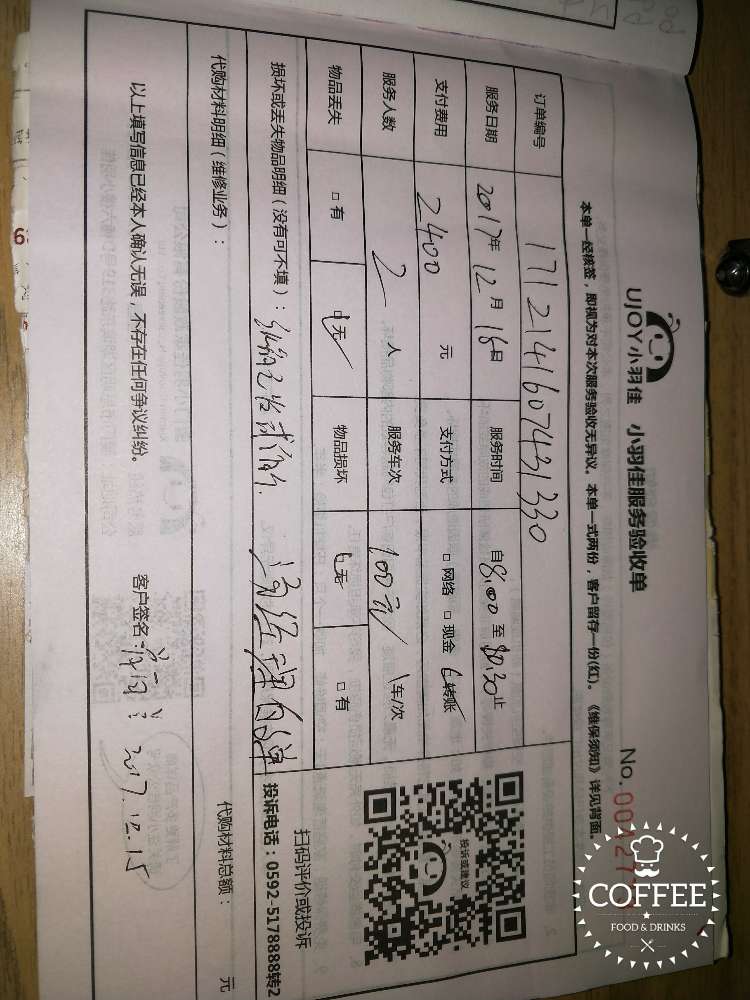 UJOY小羽佳 小羽佳服务验收单
No. 0042
本单一经核签，即视为对本次服务验收无异议。本单一式两份，客户留存一份(红)。《维保须知》详见背面。
订单编号 1712141607431330
服务日期 2017年 12月 16日 服务时间 自8:00 至 止
支付费用 2400 元 支付方式 □ 网络 □ 现金 转账
服务人数 2 人 服务车次 100元/ 车/次
物品丢失 □ 有 无 物品损坏 无 □ 有
投诉或建议
扫码评价或投诉
投诉电话：0592-5178888转2
损坏或丢失物品明细（没有可不填）：
代购材料明细（维修业务）： 代购材料总额： 元
以上填写信息已经本人确认无误，不存在任何争议纠纷。 客户签名：
COFFEE
FOOD & DRINKS